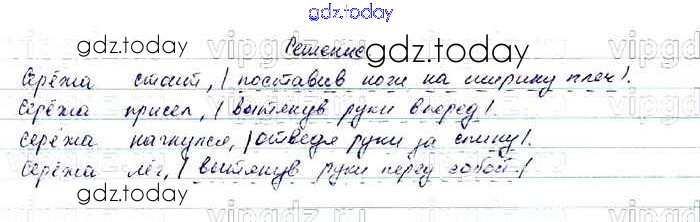 gdz.today
Решение
gdz.today
Серёжа стоит, | поставив ноги на ширину плеч|.
Серёжа присел, | вытянув руки вперёд|.
Серёжа нагнулся, | отведя руки за спину|.
Серёжа лёг, | вытянув руки перед собой.|
gdz.today
gdz.today